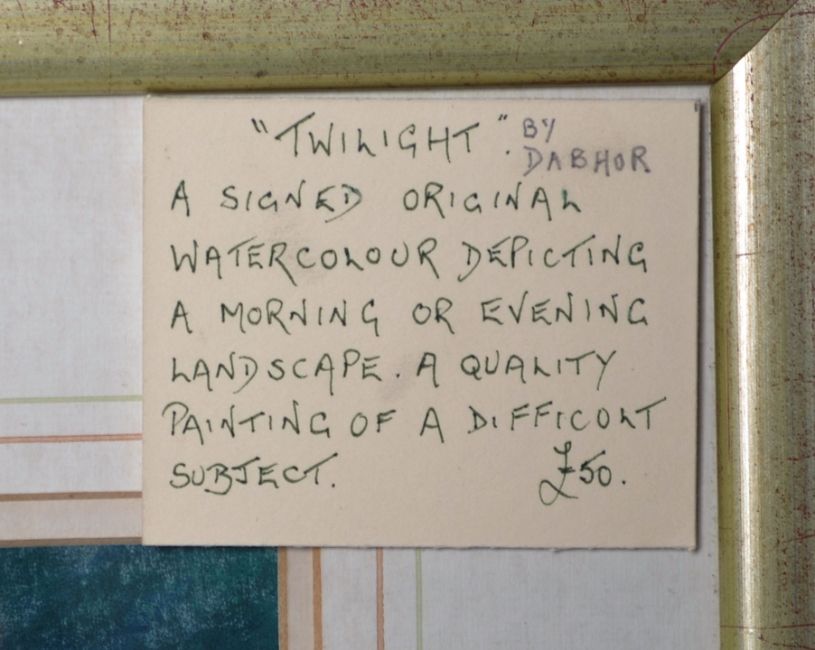 "TWILIGHT". BY
DABHOR
A SIGNED ORIGINAL
WATERCOLOUR DEPICTING
A MORNING OR EVENING
LANDSCAPE. A QUALITY
PAINTING OF A DIFFICULT
SUBJECT. £50.